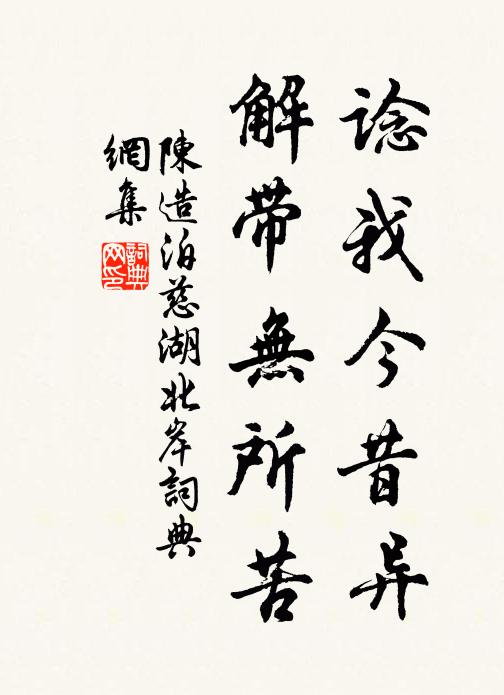 諗我今昔异
解帶無所苦
陳造泊慈湖北岸詞典
網集
詞典网印